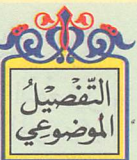 التَّفْصِيلُ
الموضُوعِي